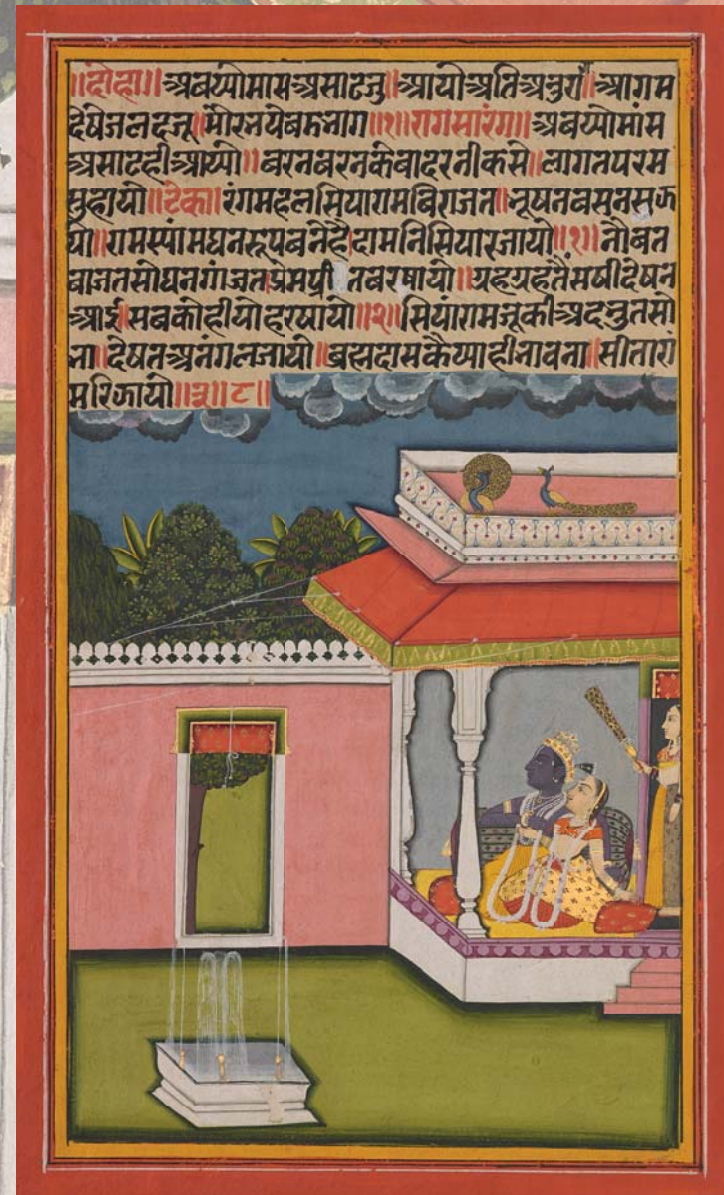 ॥दोहा॥ अबय्योमास असाटजु॥ आयो अति अनुरा॥ आगम
देषेजलदजू॥ मोरनयेबमनाग॥१॥ रागसारंग॥ अबय्योमांस
असाटही आय्यो॥ बरनबरनकेबादरनीकसे॥ लागतपरम
सुहायो॥टेक॥ रंगमहलसियारामबिराजत॥ भूषनबसनस
यो॥ रामस्यांमघनरूपबनेहै दामनिसियारजायो॥१॥ नौबत
बाजतसोघनगांजत प्रेमप्री तबरषायो॥ ग्रहग्रहतैंसषीदेषन
आई॥ सबकोहीयोहरषायो॥२॥ सियारामजूकी अदभुतसो
भा॥ देषतअनंगलजायो॥ ब्रह्मदासकैय्याहीभावना॥ सीतारा
मरिझायो॥३॥८॥